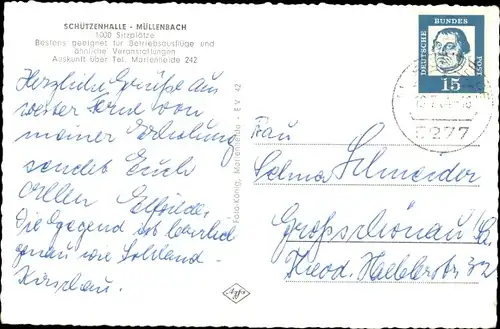 SCHÜTZENHALLE - MÜLLENBACH
1000 Sitzplätze
Bestens geeignet für Betriebsausflüge und
ähnliche Veranstaltungen
Auskunft über Tel. Marienheide 242
Herzliche Grüße aus
weiter Ferne von
meiner Erholung
sendet Euch
Allen Elfriede.
Die Gegend ist herrlich
genau wie Sohland -
Kirschau.
Foto-König, Marienheide - E.V. 42
DEUTSCHE BUNDESPOST
15
5277
Frau
Selma Schneider
Großschönau/Sa.
Theod. Haeblerstr. 32